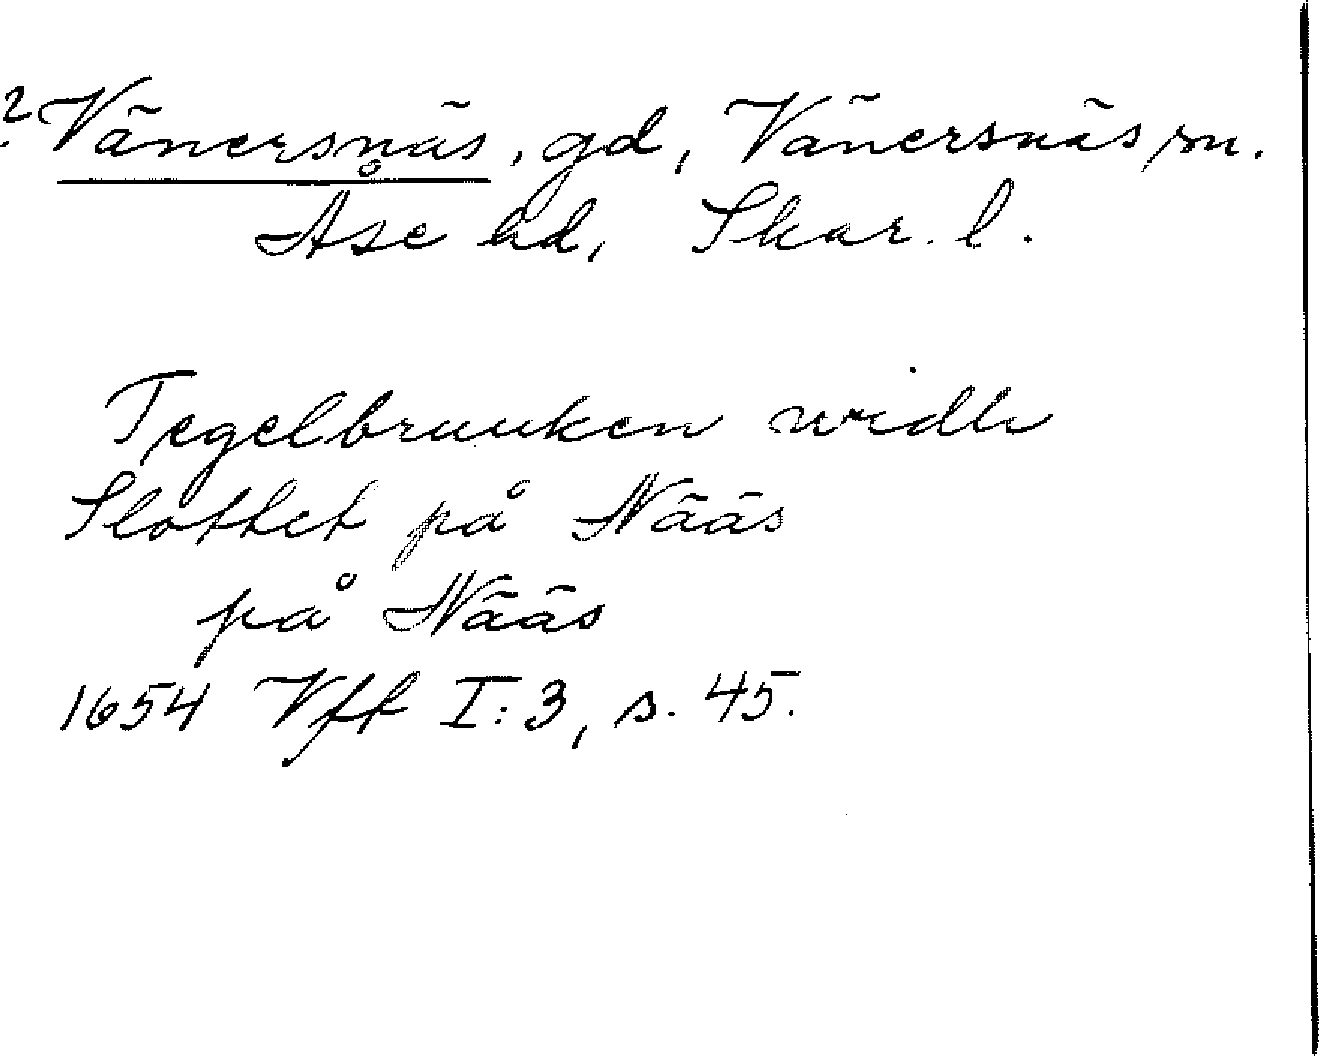 ? Vänersnäs, gd, Vänersnäs sn.
Åse hd, Skar. l.
Tegelbruuken widh
Slottet på Nääs
på Nääs
1654 Vff I:3, s. 45.